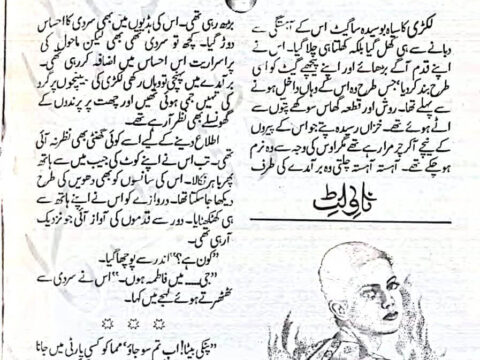 لکڑی کا سیاہ بوسیدہ سا گیٹ اس کے آہستگی سے
دبانے سے ہی کھل گیا بلکہ کھلتا ہی چلا گیا۔ اس نے
اپنے قدم آگے بڑھائے اور اپنے پیچھے گیٹ کو اسی
طرح بند کر دیا، جس طرح وہ اس کے وہاں داخل ہونے
سے پہلے تھا۔ روش اور قطعہ گھاس سوکھے پتوں سے
اٹے ہوئے تھے۔ خزاں رسیدہ پتے جو اس کے پیروں
کے نیچے آ کر چرمرا رہے تھے مگر اوس کی وجہ سے وہ نرم
ہو چکے تھے۔ آہستہ آہستہ چلتی وہ برآمدے کی طرف
ناولٹ
بڑھ رہی تھی۔ اس کی ہڈیوں میں بھی سردی کا احساس
دوڑ گیا۔ کچھ تو سردی تھی بھی لیکن ماحول کی
پراسراریت اس احساس میں اضافہ کر رہی تھی۔
برآمدے میں پہنچی تو وہاں رکھی لکڑی کی بینچوں پر گرد
کی تہیں جمی ہوئی تھیں اور چھت پر پرندوں کے
گھونسلے بھی نظر آ رہے تھے۔
اطلاع دینے کے لیے اسے کوئی گھنٹی بھی نظر نہ آئی
تھی۔ تب اس نے اپنے کوٹ کی جیب میں سے ہاتھ
پھر باہر نکالا۔ اس کی سانسوں کو بھی دھویں کی طرح
دیکھا جا سکتا تھا۔ دروازے کو اس نے اپنے ہاتھ سے
ہی کھٹکھٹایا۔ دور سے قدموں کی آواز آئی جو نزدیک
آ رہی تھی۔
”کون ہے؟“ اندر سے پوچھا گیا۔
”جی..... میں فاطمہ ہوں۔“ اس نے سردی سے
ٹھٹھرتے ہوئے لہجے میں کہا۔
”پنکی بیٹا! اب تم سو جاؤ‘ مما کو کسی پارٹی میں جانا